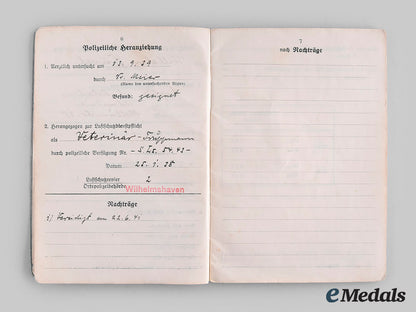 6
Polizeiliche Heranziehung
1. Ärztlich untersucht am 13.9.39
durch Dr. Meier
(Name des untersuchenden Arztes)
Befund: geeignet
2. Herangezogen zur Luftschutzdienstpflicht
als Veterinär-Truppmann
durch polizeiliche Verfügung Nr.
Datum:
Luftschutzrevier 2
Ortspolizeibehörde Wilhelmshaven
Nachträge
1) Vereidigt am 22.6.41
7
noch Nachträge
eMedals